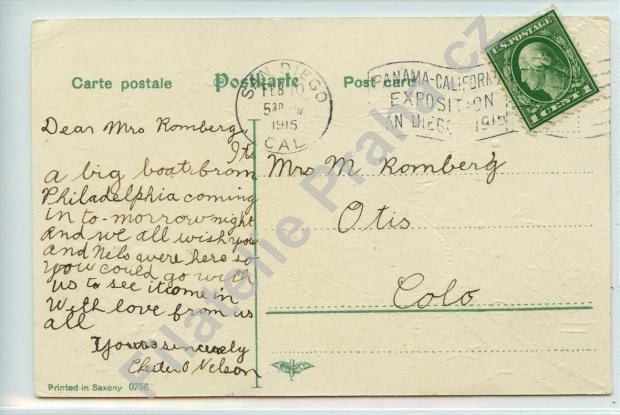 Carte postale
Postkarte
Post card
SAN DIEGO
FEB 10
530 PM
1915
CAL
PANAMA-CALIFORNIA
EXPOSITION
SAN DIEGO 1915
U.S. POSTAGE
1 CENT 1
Dear Mrs Romberg,
Its
a big boat from
Philadelphia coming
in to-morrow night
and we all wish you
and Nels were here so
you could go with
us to see it come in
With love from us
all
Yours sincerely
Chester O Nelson
Mrs M. Romberg
Otis
Colo
Printed in Saxony 0766
Filatelie Praha cz